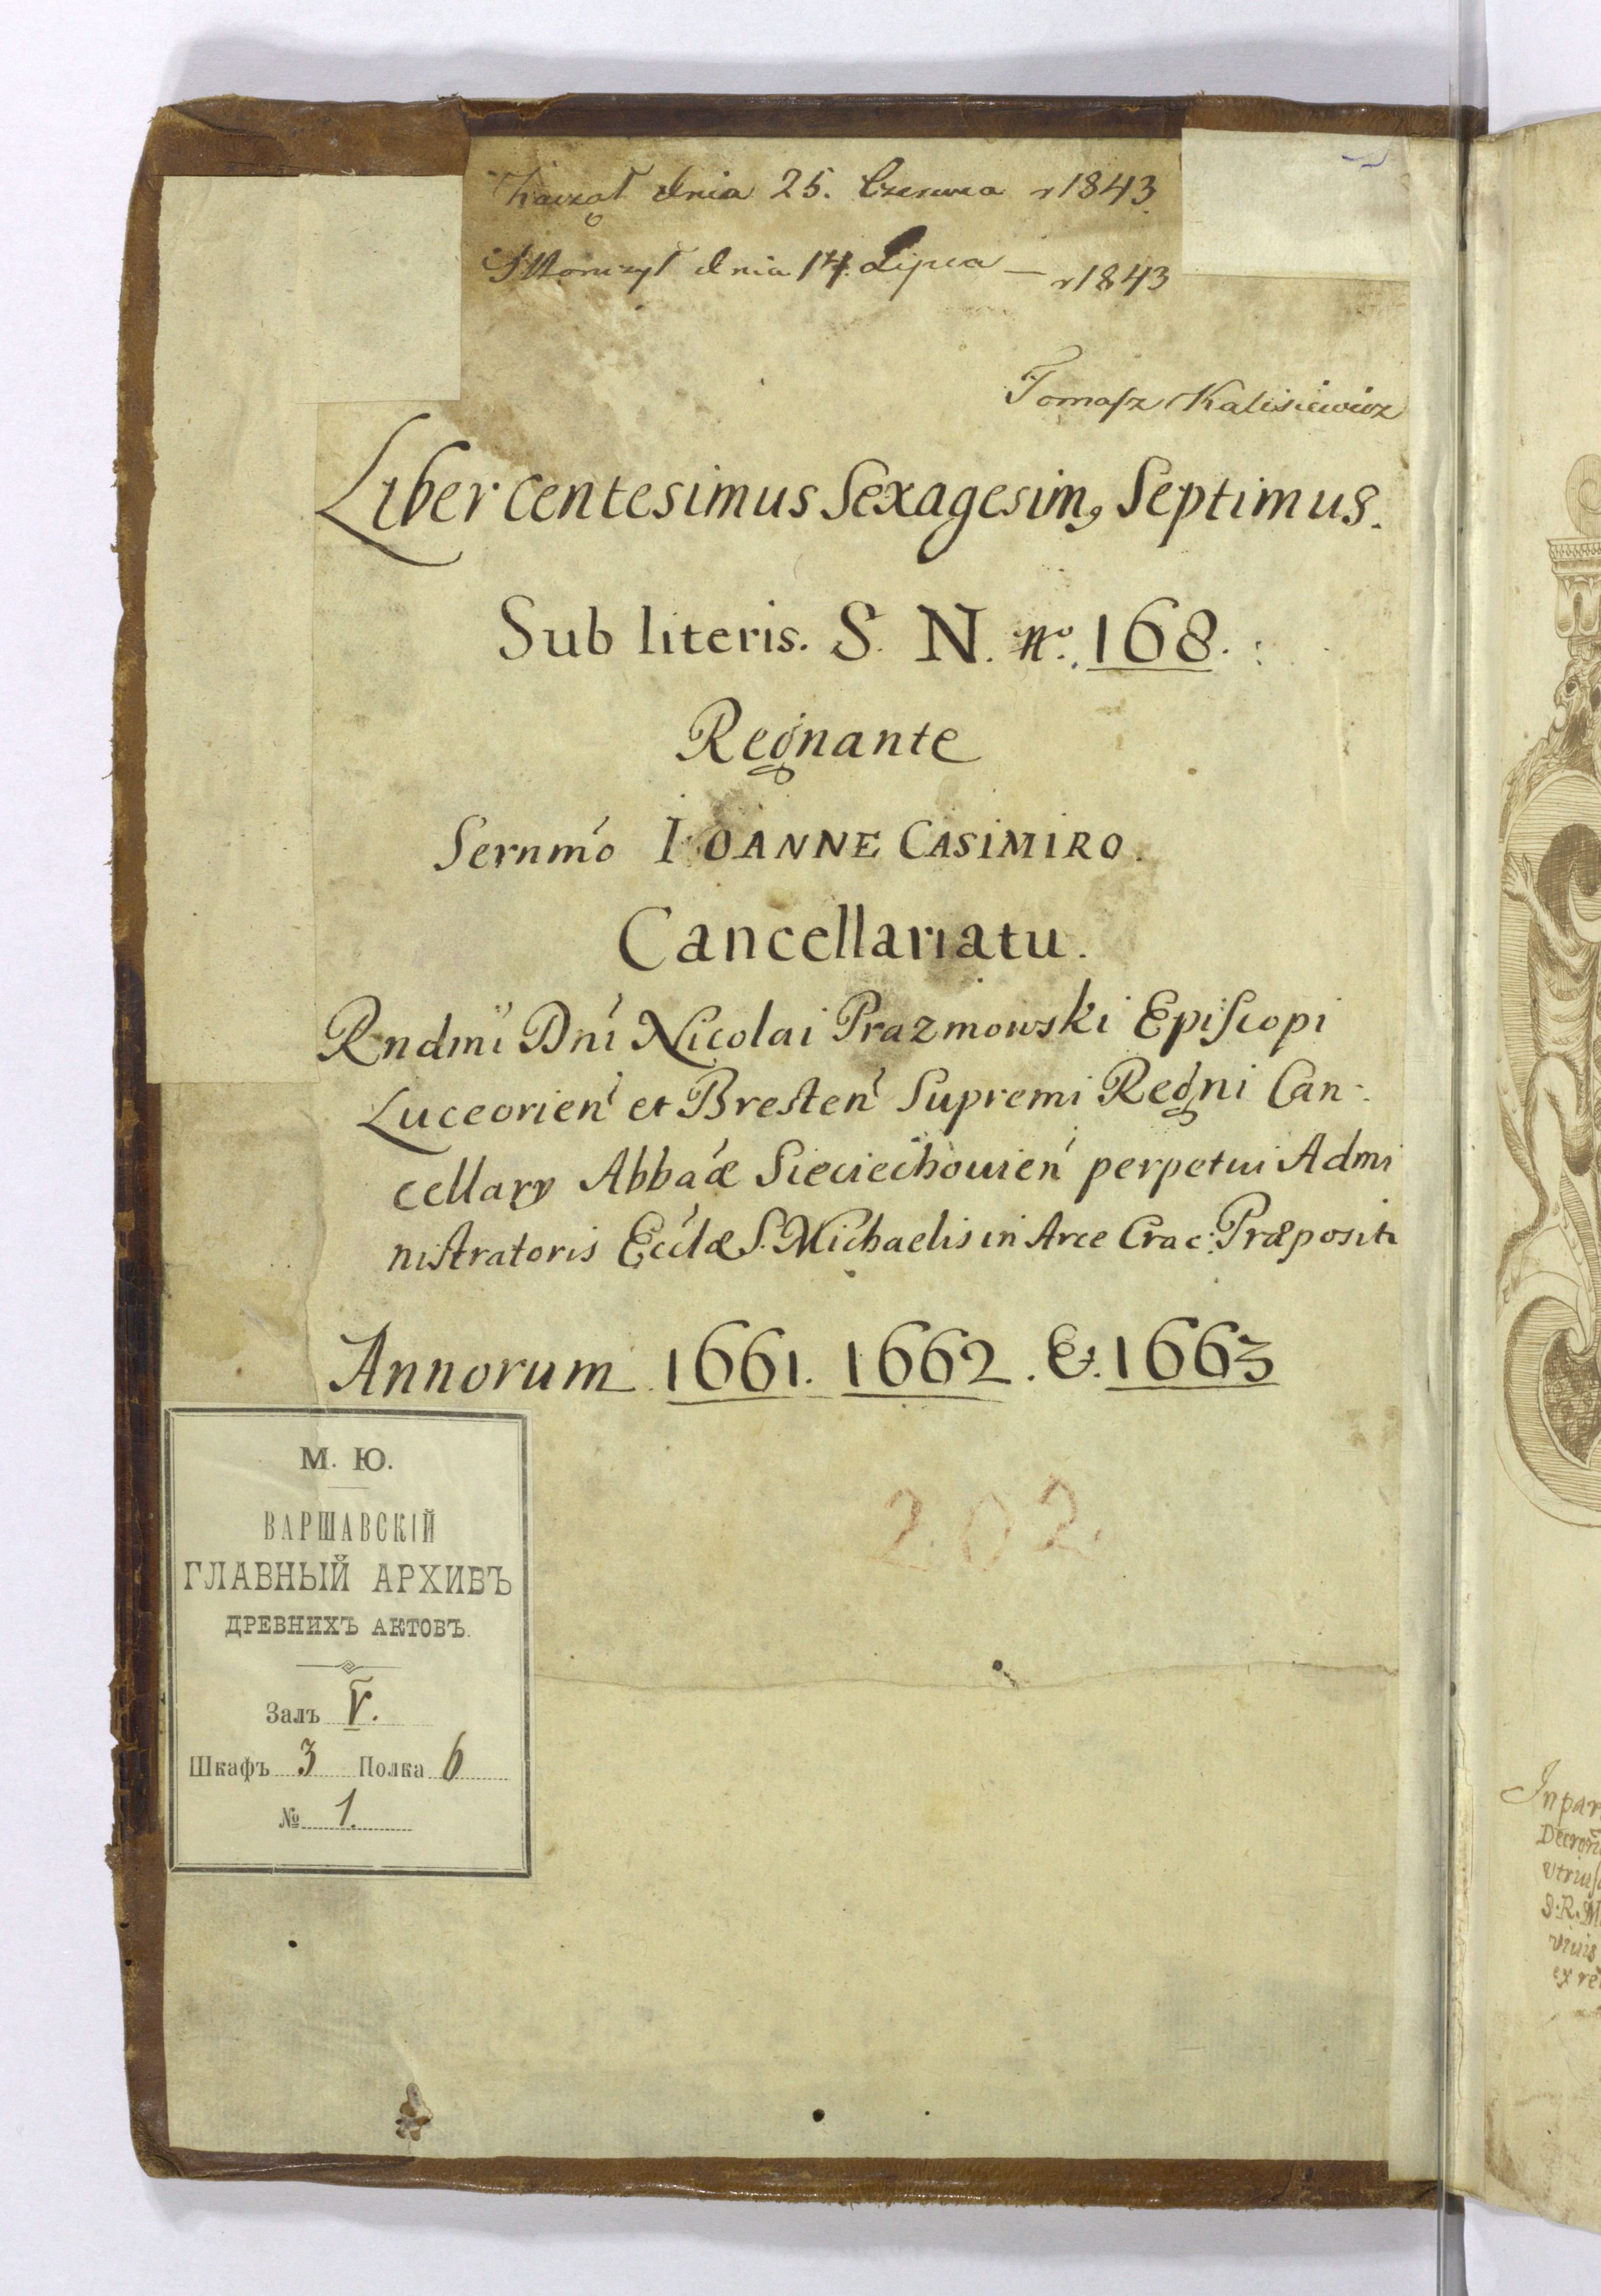 Zaczął dnia 25. Czerwca r 1843.
Skończył dnia 14. Lipca — r 1843
Tomasz Kalisiewicz
Liber centesimus Sexagesim9 Septimus.
Sub literis. S. N. No. 168.
Regnante
Sernmo IOANNE CASIMIRO.
Cancellariatu.
Rndmi Dni Nicolai Prazmowski Episcopi
Luceorien et Bresten Supremi Regni Can-
cellary Abbaæ Sieciechouien perpetui Admi
nistratoris Ecclæ S. Michaelis in Arce Crac: Præpositi
Annorum 1661. 1662. Et. 1663
202.
М. Ю.
ВАРШАВСКІЙ
ГЛАВНЫЙ АРХИВЪ
ДРЕВНИХЪ АКТОВЪ.
Залъ V.
Шкафъ 3 Полка 6
№ 1.
In par
Decron
S. R. M
viuis